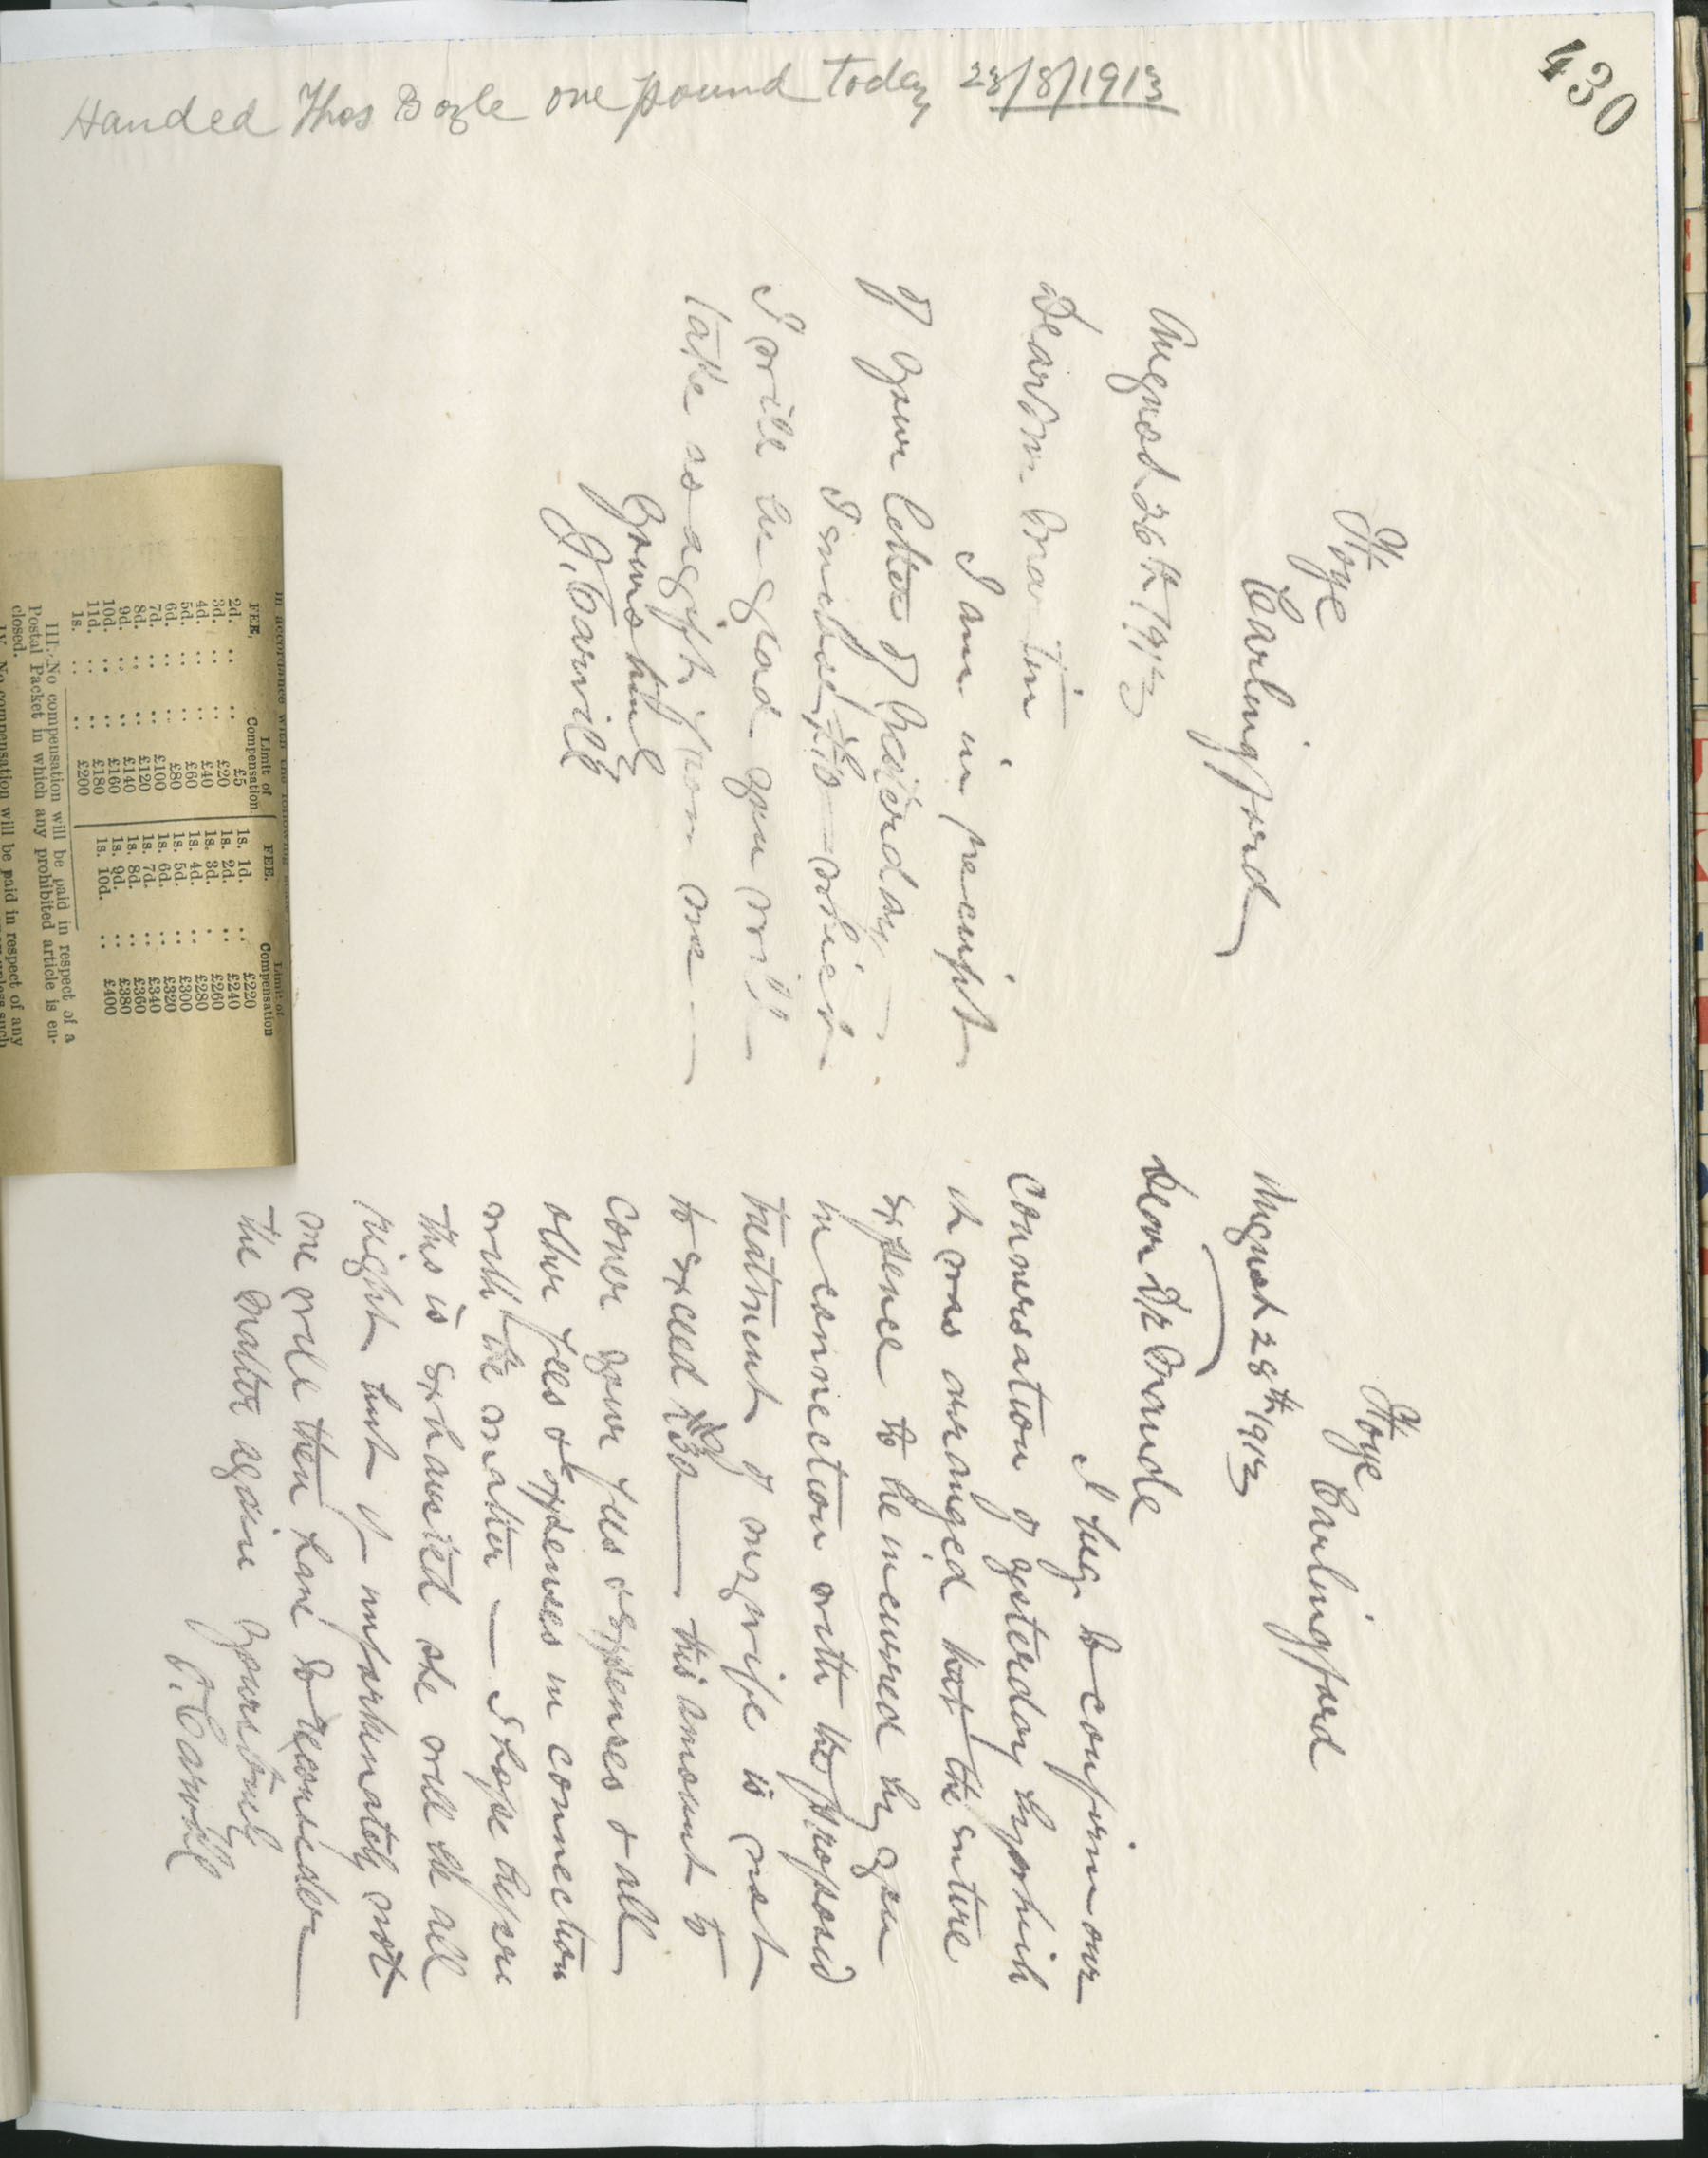 430
Handed Thos Bogle one pound today 23/8/1913
Foye
Carlingford
August 26th 1913
Dear Mr Martin
I am in receipt
of your letter of yesterday
I enclose £10 — which
I will be glad you will
take as a gift from me —
Yours truly
J. Carvill
Foye Carlingford
August 28th 1913
Dear Dr Maude
I beg to confirm our
conversation of yesterday by which
it was arranged that the entire
expence to be incurred by you
in connection with the proposed
treatment of my wife is not
to exceed £30 — this amount to
cover your fees & expenses & all
other fees & expenses in connection
with the matter — I hope before
this is exhausted she will be all
right but if unfortunately not
we will then have to reconsider
the matter again Yours truly
J. Carvill
in accordance with the following
FEE. Limit of Compensation. FEE. Limit of Compensation
2d. .. .. £5 1s. 1d. .. £220
3d. .. .. £20 1s. 2d. .. £240
4d. .. .. £40 1s. 3d. .. £260
5d. .. .. £60 1s. 4d. .. £280
6d. .. .. £80 1s. 5d. .. £300
7d. .. .. £100 1s. 6d. .. £320
8d. .. .. £120 1s. 7d. .. £340
9d. .. .. £140 1s. 8d. .. £360
10d. .. .. £160 1s. 9d. .. £380
11d. .. .. £180 1s. 10d. .. £400
1s. .. .. £200
III.—No compensation will be paid in respect of a
Postal Packet in which any prohibited article is en-
closed.
IV. No compensation will be paid in respect of any